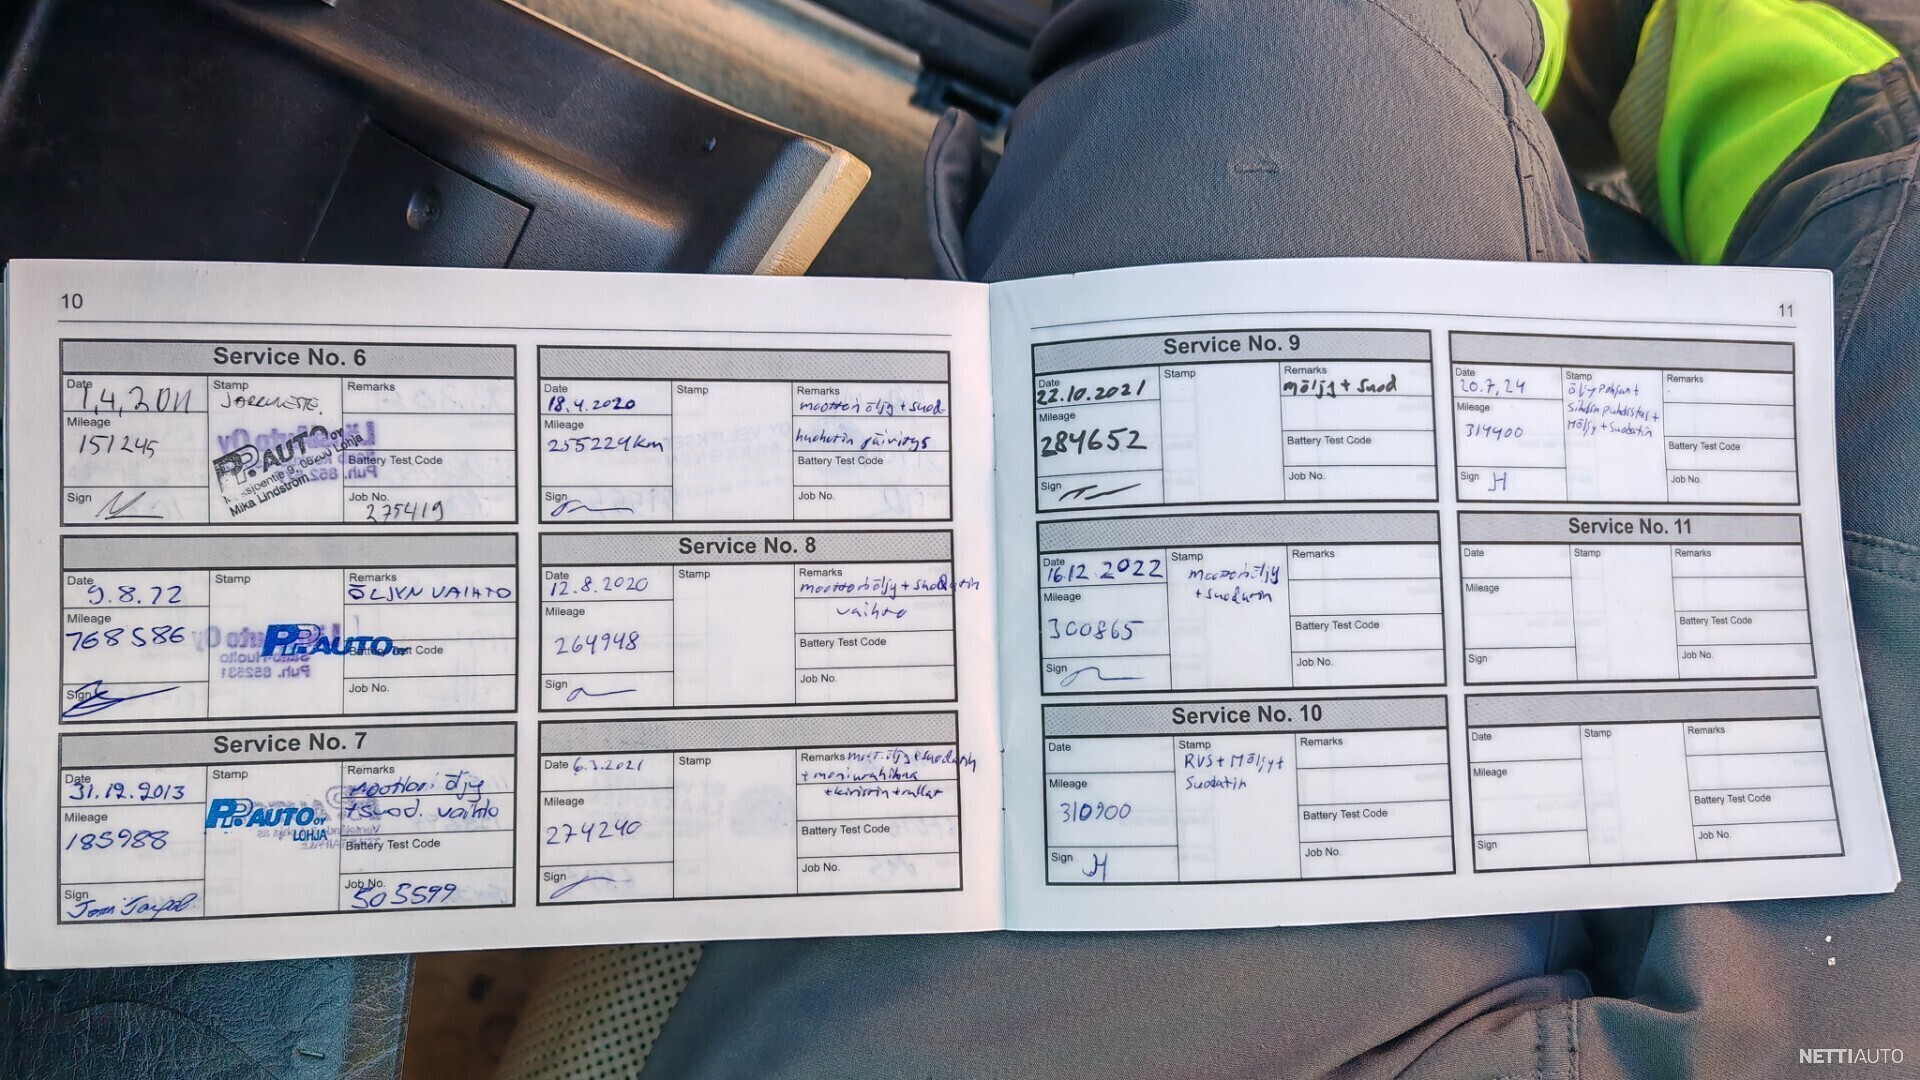 10
Service No. 6
Date
1,4,2011
Stamp
JARRUNESTE.
Remarks
Mileage
151245
PP.AUTO OY
08200 Lohja
Mika Lindström
Battery Test Code
Sign
Job No.
275419
Date
9.8.12
Stamp
Remarks
ÖLJYN VAIHTO
Mileage
168586
PP.AUTO OY
Battery Test Code
Sign
Job No.
Service No. 7
Date
31.12.2013
Stamp
Remarks
moottori öljy
+ suod. vaihto
Mileage
185988
PP.AUTO OY
LOHJA
Battery Test Code
Sign
Job No.
505599
Date
18.4.2020
Stamp
Remarks
moottoriöljy + suod.
Mileage
255224km
huoltotin päivitys
Battery Test Code
Sign
Job No.
Service No. 8
Date
12.8.2020
Stamp
Remarks
moottoriöljy + suodatin
vaihto
Mileage
264948
Battery Test Code
Sign
Job No.
Date 6.3.2021
Stamp
Remarks moot.öljy + suodatin
+ moniurahihna
+ kiristin + rullat
Mileage
274240
Battery Test Code
Sign
Job No.
11
Service No. 9
Date
22.10.2021
Stamp
Remarks
möljy + suod
Mileage
284652
Battery Test Code
Sign
Job No.
Date
16.12.2022
Stamp
moottoriöljy
+ suodatin
Remarks
Mileage
300865
Battery Test Code
Sign
Job No.
Service No. 10
Date
Stamp
RVS + Möljy +
Suodatin
Remarks
Mileage
310900
Battery Test Code
Sign
H
Job No.
Date
20.7,24
Stamp
öljypohjan +
Sihdin puhdistus +
Möljy + Suodatin
Remarks
Mileage
314400
Battery Test Code
Sign
H
Job No.
Service No. 11
Date
Stamp
Remarks
Mileage
Battery Test Code
Sign
Job No.
Date
Stamp
Remarks
Mileage
Battery Test Code
Sign
Job No.
NETTIAUTO